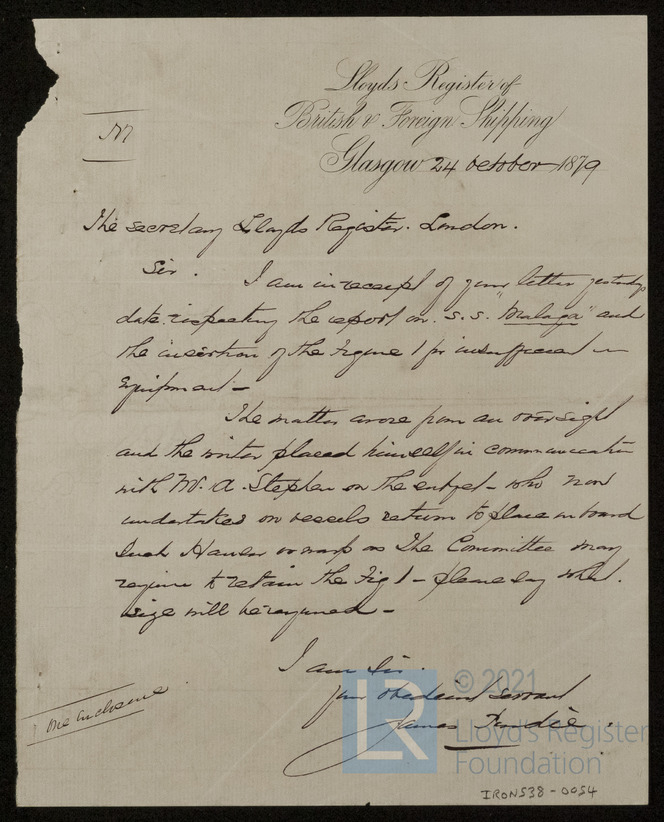 Lloyds Register of
British & Foreign Shipping
Glasgow 24 October 1879
The secretary Lloyds Register. London.
Sir. I am in receipt of your letter yesterdays
date respecting the report on S.S. "Malaga" and
the insertion of the Figure 1 for insufficient in
Equipment -
The matter arose from an oversight
and the writer placed himself in communication
with Mr. A. Stephen on the subject - who now
undertakes on vessels return to place on board
Such Hawser or warp as The Committee may
require to retain the Fig 1 - please say what
size will be required -
I am Sir.
your obedient Servant
James
one enclosure
© 2021
LR
Lloyd's Register
Foundation
IRON538-0054